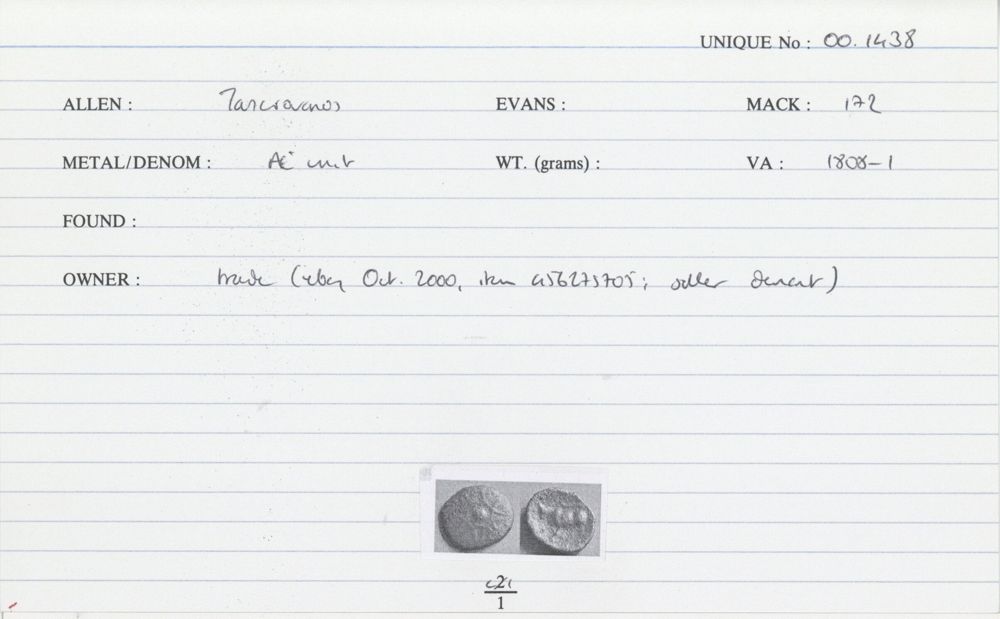 UNIQUE No : 00.1438
ALLEN : Tasciovanos EVANS : MACK : 172
METAL/DENOM : AE unit WT. (grams) : VA : 1808-1
FOUND :
OWNER : trade (ebay Oct. 2000, item 456275705; seller
1